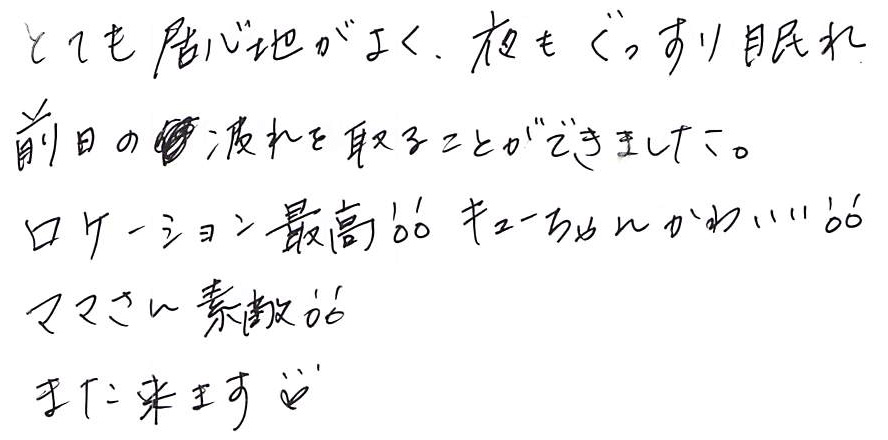 とても居心地がよく、夜もぐっすり眠れ
前日の疲れを取ることができました。
ロケーション最高!! キューちゃんかわいい!!
ママさん素敵!!
また来ます♡